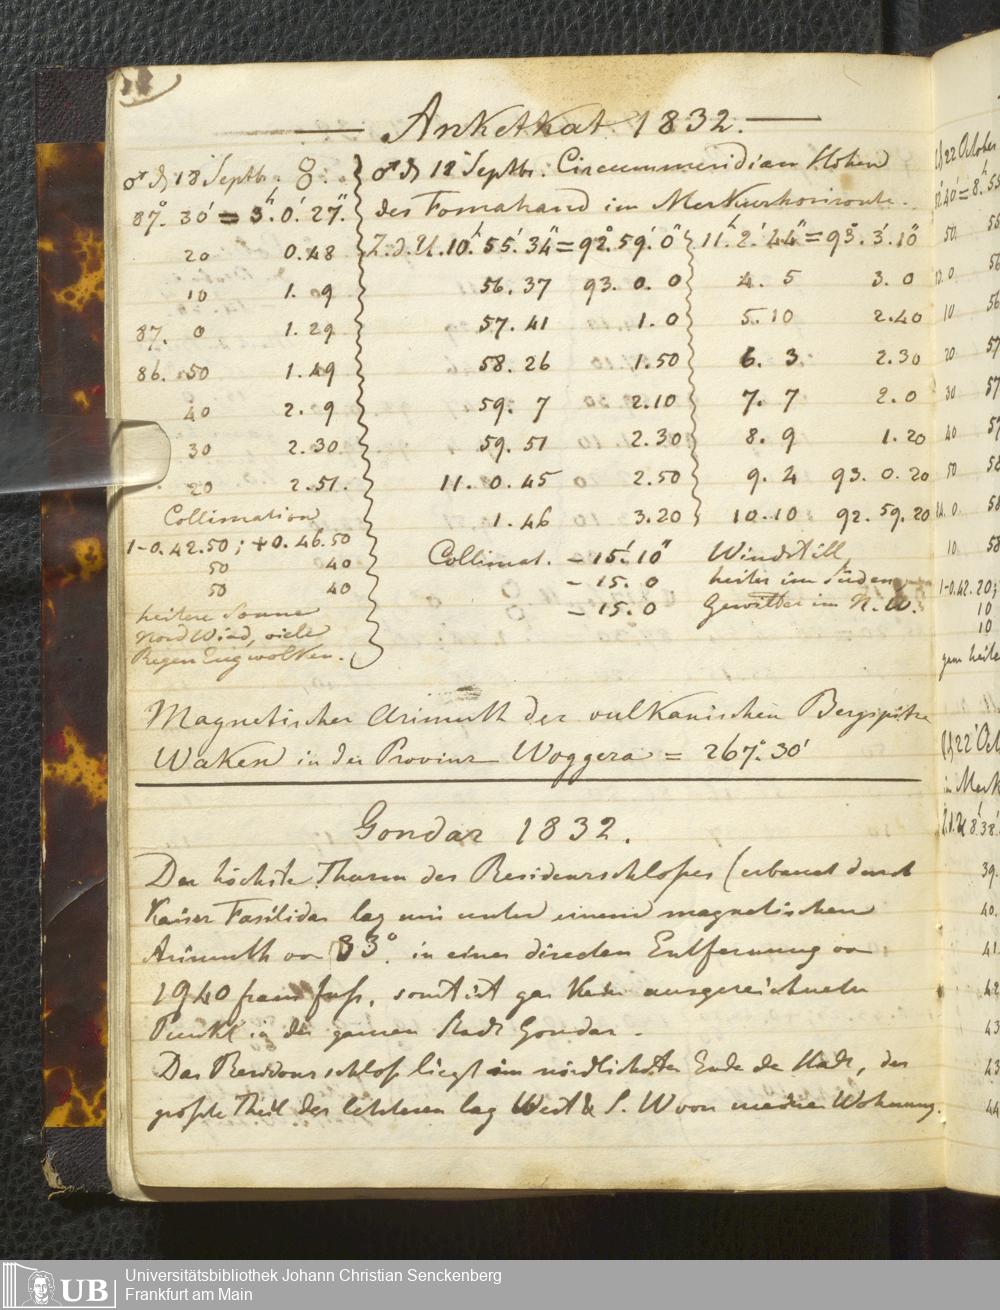 Anketkat. 1832.
♂ d 18 Septbr.
87°. 30' = 3h. 0'. 27".
20 0.48
10 1. 9
87. 0 1. 29
86. 50 1. 49
40 2. 9
30 2. 30
20 2. 51.
Collimation
1-0.42.50; +0.46.50
50 40
50 40
heitere Sonne
Nord Wind, viele
Regen Eng wolken.
♂ d 18 Septbr. Circummeridian Höhen
des Fomahand im Merkurhorizonte.
Z.d.U. 10h. 55'. 34" = 92°. 59'. 0"
56. 37 93. 0. 0
57. 41 1. 0
58. 26 1. 50
59. 7 2. 10
59. 51 2. 30
11. 0. 45 2. 50
1. 46 3. 20
11h. 2'. 44" = 93°. 3'. 10"
4. 5 3. 0
5. 10 2. 40
6. 3 2. 30
7. 7 2. 0
8. 9 1. 20
9. 4 93. 0. 20
10. 10 92. 59. 20
Collimat. - 15'. 10"
- 15. 0
- 15. 0
Windstill,
heiter im Süden
Gewitter im N.W.
Magnetischer Azimuth der vulkanischen Bergspitze
Waken in der Provinz Woggera = 267°. 30'
Gondar 1832.
Der höchste Thurm des Residenzschloßes (erbauet durch
Kaiser Fasilidas lag mir unter einem magnetischen
Azimuth von 83°. in einer directen Entfernung von
1940 franz fuß, sonst ist gar kein ausgezeichneter
Punkt in der ganzen Stadt Gondar.
Das Residenzschloß liegt im nördlichsten Ende der Stadt, der
größte Theil der letzteren lag West & S. W von meiner Wohnung.
22 October
50
10
20
30
40
50
10
1-0.42.20;
10
10
UB
Universitätsbibliothek Johann Christian Senckenberg
Frankfurt am Main